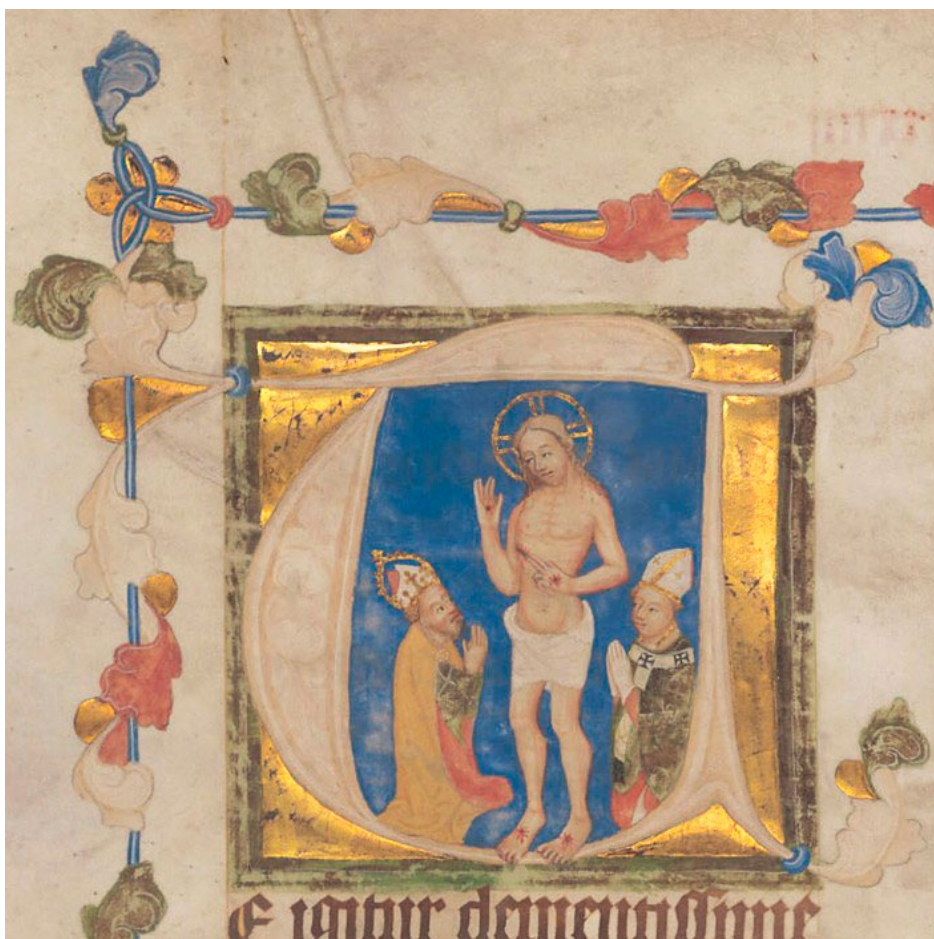 T
E igitur clementissime